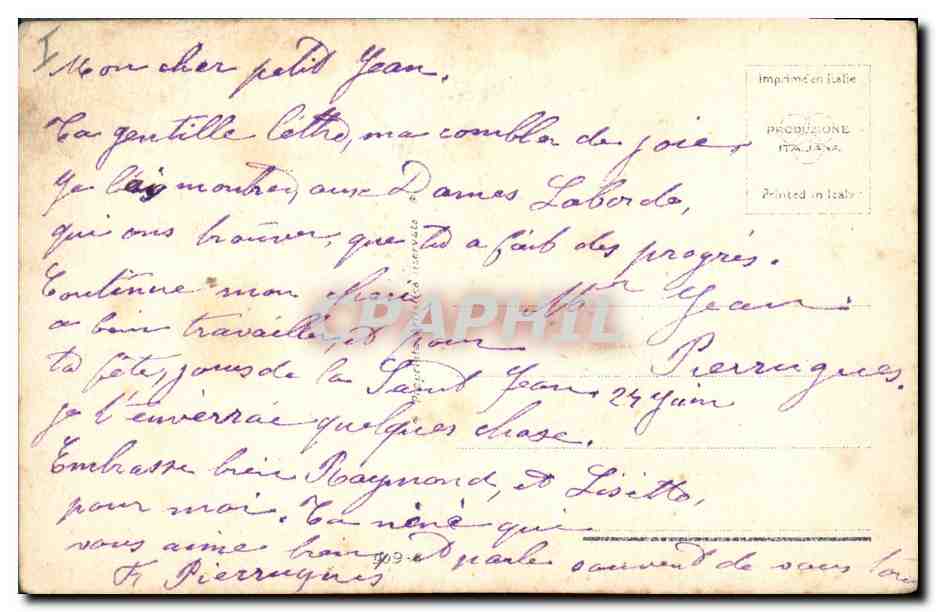 I
Mon cher petit Jean.
Imprimé en Italie
Ta gentille lettre, ma combler de joie.
PRODUZIONE
ITALIANA
Je l'ais montrer, aux Dames Laborde,
Printed in Italie
qui ons trouver, que tu a fait des progrès.
Continue mon chéri
Mr Jean
a bien travailler, et pour
Pierrugues.
ta fête, jours de la Saint Jean. 24 juin
je t'enverrai quelques chose.
Embrasse bien Raymond, et Lisette,
pour moi. Ta néné qui
vous aime bien et parle souvent de vous
F. Pierrugues
Proprietà artistica riservata
CPAPHIL